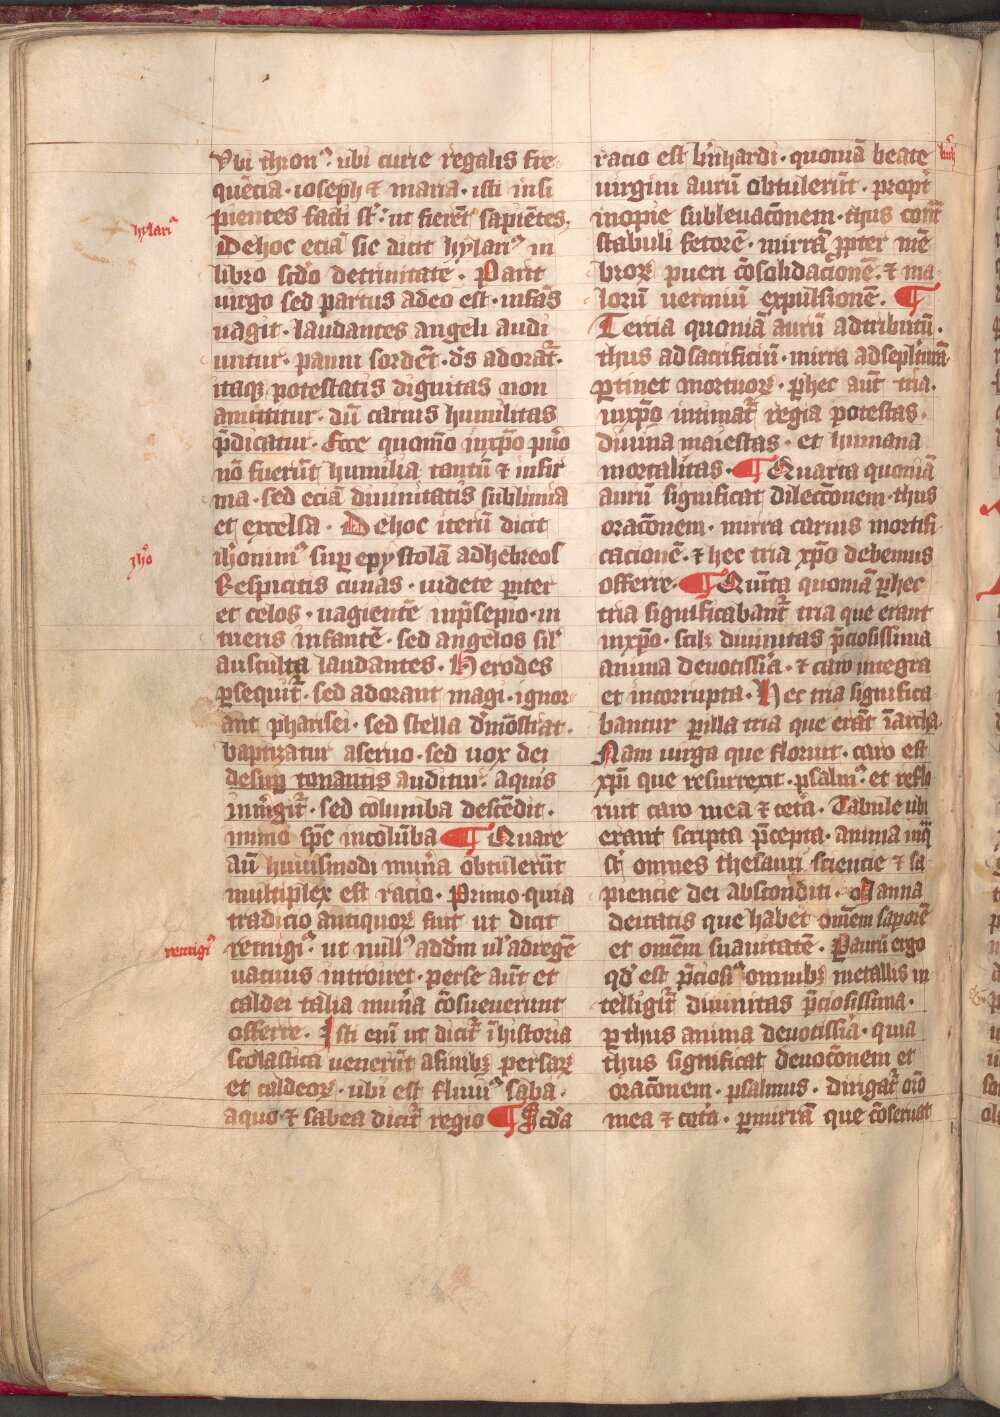 Vbi thronꝰ ubi curie regalis fre
quẽcia · ioseph ⁊ maria · isti insi
pientes facti st̃ · ut fierẽt sapiẽtes ·
De hoc eciã sic dicit hylariꝰ in
hylariꝰ
libro scdo detrinitate · Parit
uirgo sed partus adeo est · infãs
uagit · laudantes angeli audi
untur · panni sordẽt · ds̃ adorat̃ ·
itaqꝫ potestatis dignitas non
amittitur · dũ carnis humilitas
p̃dicatur · Ecce quomõ inxp̃o pu̾o
nõ fuerũt humilia tantũ ⁊ infir
ma · sed eciã diuinitatis sublimia
et excelsa · De hoc iterũ dicit
iheronimꝰ suꝑ epystolã adhebreos
Jh̾o
Respicitis cunas · uidete pariter
et celos · uagientẽ inp̃sepio · in
tueris infantẽ · sed angelos sil̾
ausculta laudantes · Herodes
ꝑsequit̃ · sed adorant magi · ignor
ant pharisei · sed stella d̾mõstrat ·
baptizatur aseruo · sed uox dei
desuꝑ tonantis auditur · aquis
ĩmergit̃ · sed columba descẽdit ·
immo sp̃c incolũba ¶ Quare
aũ huiusmodi mun̾a obtulerũt
multiplex est racio · Primo quia
tradicio antiquoꝝ fuit ut dicit
remigiꝰ · ut nullꝰ addm̃ ul̾ adregẽ
remigiꝰ
uacuus introiret · perse aũt et
caldei talia mun̾a cõsueuerunt
offerre · Isti eni̾ ut dicit̃ ĩ historia
scolastica uenerũt afinibꝫ persaꝝ
et caldeoꝝ · ubi est fluuiꝰ saba ·
aquo ⁊ sabea dicit̃ regio ¶ Scda
racio est b̾nhardi · quoniã beate
b̾nh̾
uirgini aurũ obtulerũt · propt̾
inopie subleuacõnem · thus cont̃
stabuli fetorẽ · mirrã ꝓpter mẽ
broꝝ pueri cõsolidacionẽ · ⁊ ma
lorũ uermiũ expulsionẽ · ¶
Tercia quoniã aurũ adtributũ ·
thus adsacrificiũ · mirra adsepulturã
ꝑtinet mortuoꝝ · ꝑ hec aũt tria ·
inxp̃o intimat̃ regia potestas ·
diuina maiestas · et humana
mortalitas · ¶ Quarta quoniã
aurũ significat dilectõnem · thus
oracõnem · mirra carnis mortifi
cacionẽ · ⁊ hec tria xp̃o debemus
offerre · ¶ Quĩta quoniã ꝑ hec
tria significabant̃ tria que erant
inxp̃o · scilꝫ diuinitas p̃ciosissima
anima deuotissiã · ⁊ caro integra
et incorrupta · Hec tria significa
bantur ꝑ illa tria que erãt ĩ archa ·
Nam uirga que floruit · caro est
xp̃i que resurrexit · psalmꝰ · et reflo
ruit caro mea ⁊ cet̾a · Tabule ubi
erant scripta p̃cepta · anima inq̃
st̃ omnes thesauri sciencie ⁊ sa
piencie dei absconditi · Manna
deitatis que habet omẽm saporẽ
et omẽm suauitatẽ · Paurũ ergo
qd̾ est p̃ciosiꝰ omnibꝫ metallis in
telligit̃ diuinitas p̃ciosissima ·
ꝑ thus anima deuotissiã · quia
thus significat deuocõnem et
oracõnem · psalmus · dirigat̃ or̃o
mea ⁊ cet̾a · ꝑ mirrã que cõseruat